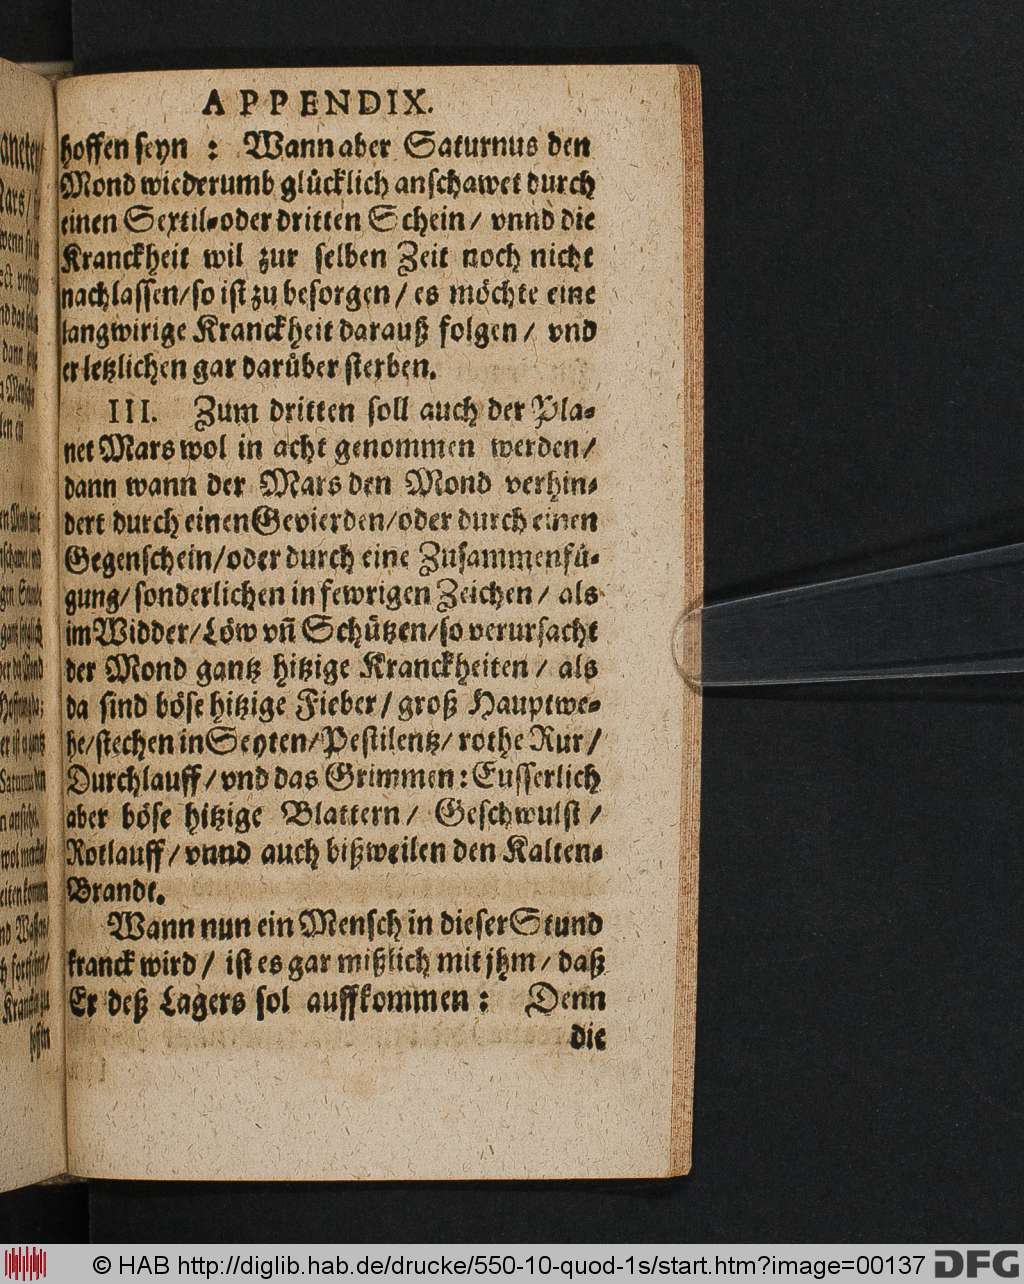 APPENDIX.
hoffen seyn : Wann aber Saturnus den
Mond wiederumb glücklich anschawet durch
einen Sextil-oder dritten Schein/ vnnd die
Kranckheit wil zur selben Zeit noch nicht
nachlassen/so ist zu besorgen/ es möchte eine
langwirige Kranckheit darauß folgen/ vnd
er letzlichen gar darüber sterben.
III. Zum dritten soll auch der Pla-
net Mars wol in acht genommen werden/
dann wann der Mars den Mond verhin-
dert durch einen Gevierden/oder durch einen
Gegenschein/oder durch eine Zusammenfü-
gung/ sonderlichen in fewrigen Zeichen/ als
im Widder/Löw vñ Schützen/so verursacht
der Mond gantz hitzige Kranckheiten/ als
da sind böse hitzige Fieber/ groß Hauptwe-
he/stechen in Seyten/Pestilentz/ rothe Rur/
Durchlauff/ vnd das Grimmen: Eusserlich
aber böse hitzige Blattern/ Geschwulst/
Rotlauff/ vnnd auch bißweilen den Kalten-
Brandt.
Wann nun ein Mensch in dieser Stund
kranck wird/ ist es gar mißlich mit jhm/ daß
Er deß Lagers sol auffkommen : Denn
die
© HAB http://diglib.hab.de/drucke/550-10-quod-1s/start.htm?image=00137
DFG